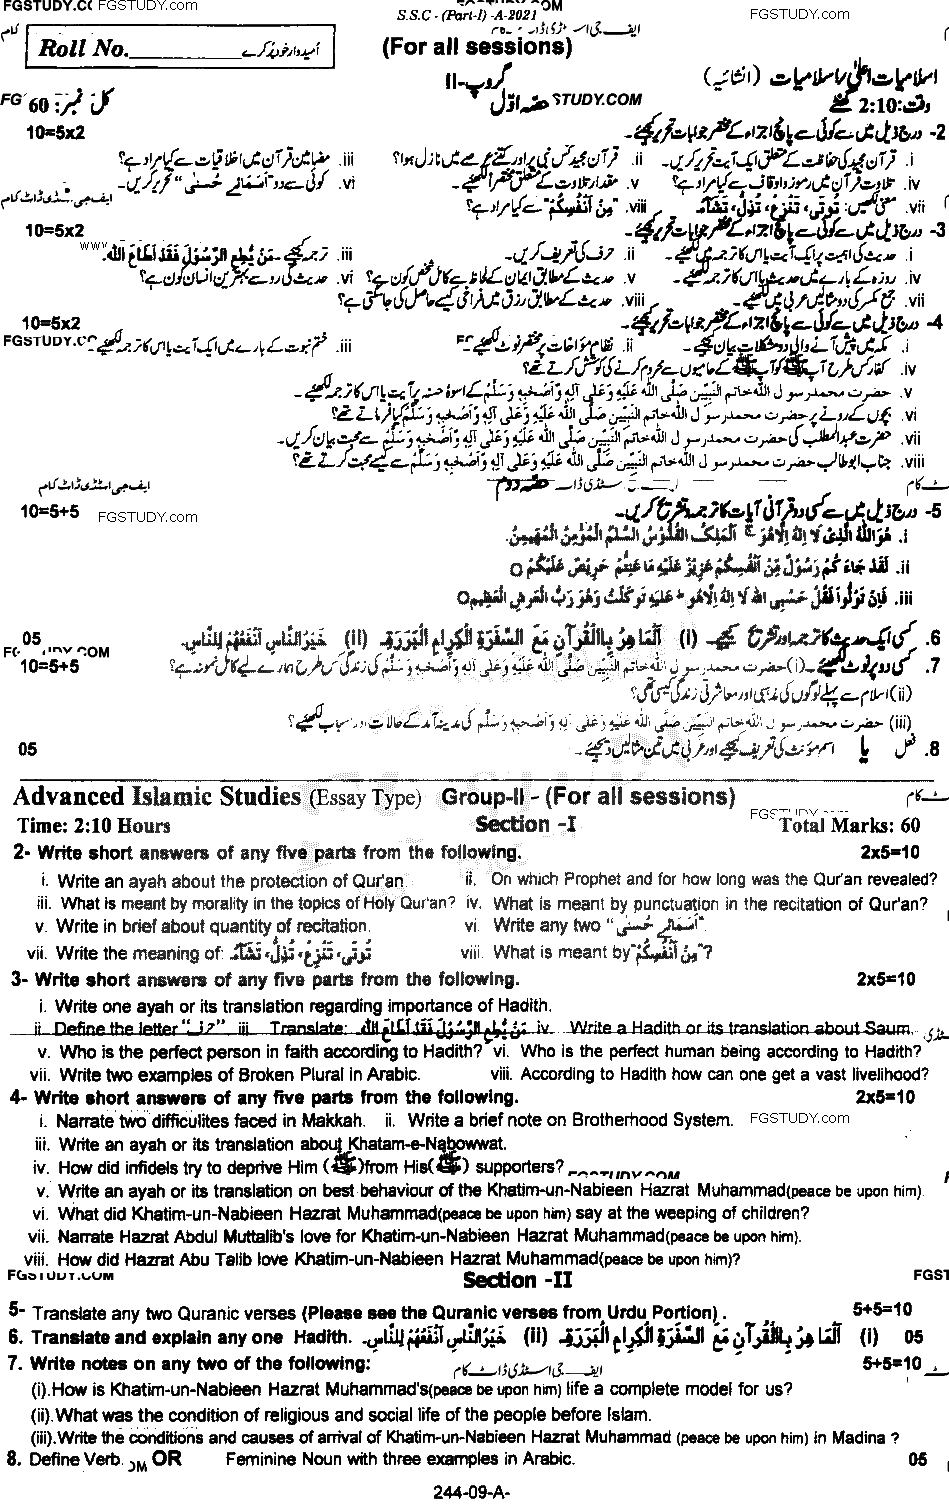 FGSTUDY.COM FGSTUDY.com
S.S.C - (Part-I) -A-2021 FGSTUDY.com
Roll No.__________ امیدوار خود پُر کرے (For all sessions)
اسلامیات اعلیٰ / اسلامیات (انشائیہ) گروپ-II
وقت: 2:10 گھنٹے حصہ اوّل STUDY.COM کل نمبر: 60
2- درج ذیل میں سے کوئی سے پانچ اجزاء کے مختصر جوابات تحریر کیجئے۔ 10=5x2
i. قرآن مجید کی حفاظت کے متعلق ایک آیت تحریر کریں۔ ii. قرآن مجید کس نبی پر اور کتنے عرصے میں نازل ہوا؟ iii. مضامین قرآن میں اخلاقیات سے کیا مراد ہے؟
iv. تلاوت قرآن میں رموز و اوقاف سے کیا مراد ہے؟ v. مقدار تلاوت کے متعلق مختصراً لکھیے۔ vi. کوئی سے دو "اَسْمَائے حُسنٰی" تحریر کریں۔
vii. معنی لکھیں: تُوتِی، تَنْزِعُ، تُذِلُّ، تَشَآءُ viii. "مِنْ اَنْفُسِکُمْ" سے کیا مراد ہے؟
3- درج ذیل میں سے کوئی سے پانچ اجزاء کے مختصر جوابات تحریر کیجئے۔ 10=5x2
i. حدیث کی اہمیت پر ایک آیت یا اس کا ترجمہ لکھیے۔ ii. حرف کی تعریف کریں۔ iii. ترجمہ کیجیے۔ مَنْ یُّطِعِ الرَّسُوْلَ فَقَدْ اَطَاعَ اللّٰہَ.
iv. روزہ کے بارے میں حدیث یا اس کا ترجمہ لکھیے۔ v. حدیث کے مطابق ایمان کے لحاظ سے کامل شخص کون ہے؟ vi. حدیث کی رو سے بہترین انسان کون ہے؟
vii. جمع مکسر کی دو مثالیں عربی میں لکھیے۔ viii. حدیث کے مطابق رزق میں فراخی کیسے حاصل کی جا سکتی ہے؟
4- درج ذیل میں سے کوئی سے پانچ اجزاء کے مختصر جوابات تحریر کیجئے۔ 10=5x2
i. مکہ میں پیش آنے والی دو مشکلات بیان کیجیے۔ ii. نظام مؤاخات پر مختصر نوٹ لکھیے۔ iii. ختم نبوت کے بارے میں ایک آیت یا اس کا ترجمہ لکھیے۔
iv. کفار کس طرح آپ ﷺ کو آپ ﷺ کے حامیوں سے محروم کرنے کی کوشش کرتے تھے؟
v. حضرت محمد رسول اللہ خاتم النبیّن صَلَّی اللہُ عَلَیْہِ وَعَلٰی آلِہٖ وَاَصْحٰبِہٖ وَسَلَّمْ کے اسوۂ حسنہ پر آیت یا اس کا ترجمہ لکھیے۔
vi. بچوں کے رونے پر حضرت محمد رسول اللہ خاتم النبیّن صَلَّی اللہُ عَلَیْہِ وَعَلٰی آلِہٖ وَاَصْحٰبِہٖ وَسَلَّمْ کیا فرماتے تھے؟
vii. حضرت عبدالمطلب کی حضرت محمد رسول اللہ خاتم النبیّن صَلَّی اللہُ عَلَیْہِ وَعَلٰی آلِہٖ وَاَصْحٰبِہٖ وَسَلَّمْ سے محبت بیان کریں۔
viii. جناب ابو طالب حضرت محمد رسول اللہ خاتم النبیّن صَلَّی اللہُ عَلَیْہِ وَعَلٰی آلِہٖ وَاَصْحٰبِہٖ وَسَلَّمْ سے کیسے محبت کرتے تھے؟
حصہ دوم ایف جی اسٹڈی ڈاٹ کام
5- درج ذیل میں سے کسی دو قرآنی آیات کا ترجمہ و تشریح کریں۔ FGSTUDY.com 10=5+5
i. هُوَ اللّٰهُ الَّذِیْ لَا اِلٰهَ اِلَّا هُوَ ۚ اَلْمَلِکُ الْقُدُّوْسُ السَّلٰمُ الْمُؤْمِنُ الْمُهَیْمِنُ.
ii. لَقَدْ جَاءَ کُمْ رَسُوْلٌ مِّنْ اَنْفُسِکُمْ عَزِیْزٌ عَلَیْهِ مَا عَنِتُّمْ حَرِیْصٌ عَلَیْکُمْ ○
iii. فَاِنْ تَوَلَّوْا فَقُلْ حَسْبِیَ اللّٰهُ لَا اِلٰهَ اِلَّا هُوَ ط عَلَیْهِ تَوَکَّلْتُ وَهُوَ رَبُّ الْعَرْشِ الْعَظِیْمِ○
6. کسی ایک حدیث کا ترجمہ اور تشریح کیجیے۔ (i) اَلْمَا هِرُ بِالْقُرْآنِ مَعَ السَّفَرَةِ الْکِرَامِ الْبَرَرَةِ۔ (ii) خَیْرُ النَّاسِ اَنْفَعُهُمْ لِلنَّاسِ۔ 05
7. کسی دو پر نوٹ لکھیے۔ (i) حضرت محمد رسول اللہ خاتم النبیّن صَلَّی اللہُ عَلَیْہِ وَعَلٰی آلِہٖ وَاَصْحٰبِہٖ وَسَلَّمْ کی زندگی کس طرح ہمارے لیے کامل نمونہ ہے؟ 10=5+5
(ii) اسلام سے پہلے لوگوں کی مذہبی اور معاشرتی زندگی کیسی تھی؟
(iii) حضرت محمد رسول اللہ خاتم النبیّن صَلَّی اللہُ عَلَیْہِ وَعَلٰی آلِہٖ وَاَصْحٰبِہٖ وَسَلَّمْ کی مدینہ آمد کے حالات اور اسباب لکھیے؟
8. فعل یا اسم مؤنث کی تعریف کیجیے اور عربی میں تین مثالیں دیجئے۔ 05
Advanced Islamic Studies (Essay Type) Group-II - (For all sessions)
Time: 2:10 Hours Section -I Total Marks: 60
2- Write short answers of any five parts from the following. 2x5=10
i. Write an ayah about the protection of Qur'an. ii. On which Prophet and for how long was the Qur'an revealed?
iii. What is meant by morality in the topics of Holy Qur'an? iv. What is meant by punctuation in the recitation of Qur'an?
v. Write in brief about quantity of recitation. vi. Write any two "اَسْمَائے حُسنٰی".
vii. Write the meaning of: تُوتِی، تَنْزِعُ، تُذِلُّ، تَشَآءُ viii. What is meant by "مِنْ اَنْفُسِکُمْ"?
3- Write short answers of any five parts from the following. 2x5=10
i. Write one ayah or its translation regarding importance of Hadith.
ii. Define the letter "حرف" iii. Translate: مَنْ یُّطِعِ الرَّسُوْلَ فَقَدْ اَطَاعَ اللّٰہَ iv. Write a Hadith or its translation about Saum.
v. Who is the perfect person in faith according to Hadith? vi. Who is the perfect human being according to Hadith?
vii. Write two examples of Broken Plural in Arabic. viii. According to Hadith how can one get a vast livelihood?
4- Write short answers of any five parts from the following. 2x5=10
i. Narrate two difficulites faced in Makkah. ii. Write a brief note on Brotherhood System. FGSTUDY.com
iii. Write an ayah or its translation about Khatam-e-Nabowwat.
iv. How did infidels try to deprive Him (ﷺ)from His(ﷺ) supporters? FGSTUDY.COM
v. Write an ayah or its translation on best behaviour of the Khatim-un-Nabieen Hazrat Muhammad(peace be upon him).
vi. What did Khatim-un-Nabieen Hazrat Muhammad(peace be upon him) say at the weeping of children?
vii. Narrate Hazrat Abdul Muttalib's love for Khatim-un-Nabieen Hazrat Muhammad(peace be upon him).
viii. How did Hazrat Abu Talib love Khatim-un-Nabieen Hazrat Muhammad(peace be upon him)?
FGSTUDY.COM Section -II FGST
5- Translate any two Quranic verses (Please see the Quranic verses from Urdu Portion) . 5+5=10
6. Translate and explain any one Hadith. (i) اَلْمَا هِرُ بِالْقُرْآنِ مَعَ السَّفَرَةِ الْکِرَامِ الْبَرَرَةِ۔ (ii) خَیْرُ النَّاسِ اَنْفَعُهُمْ لِلنَّاسِ۔ 05
7. Write notes on any two of the following: ایف جی اسٹڈی ڈاٹ کام 5+5=10
(i).How is Khatim-un-Nabieen Hazrat Muhammad's(peace be upon him) life a complete model for us?
(ii).What was the condition of religious and social life of the people before Islam.
(iii).Write the conditions and causes of arrival of Khatim-un-Nabieen Hazrat Muhammad (peace be upon him) in Madina ?
8. Define Verb. OR Feminine Noun with three examples in Arabic. 05
244-09-A-